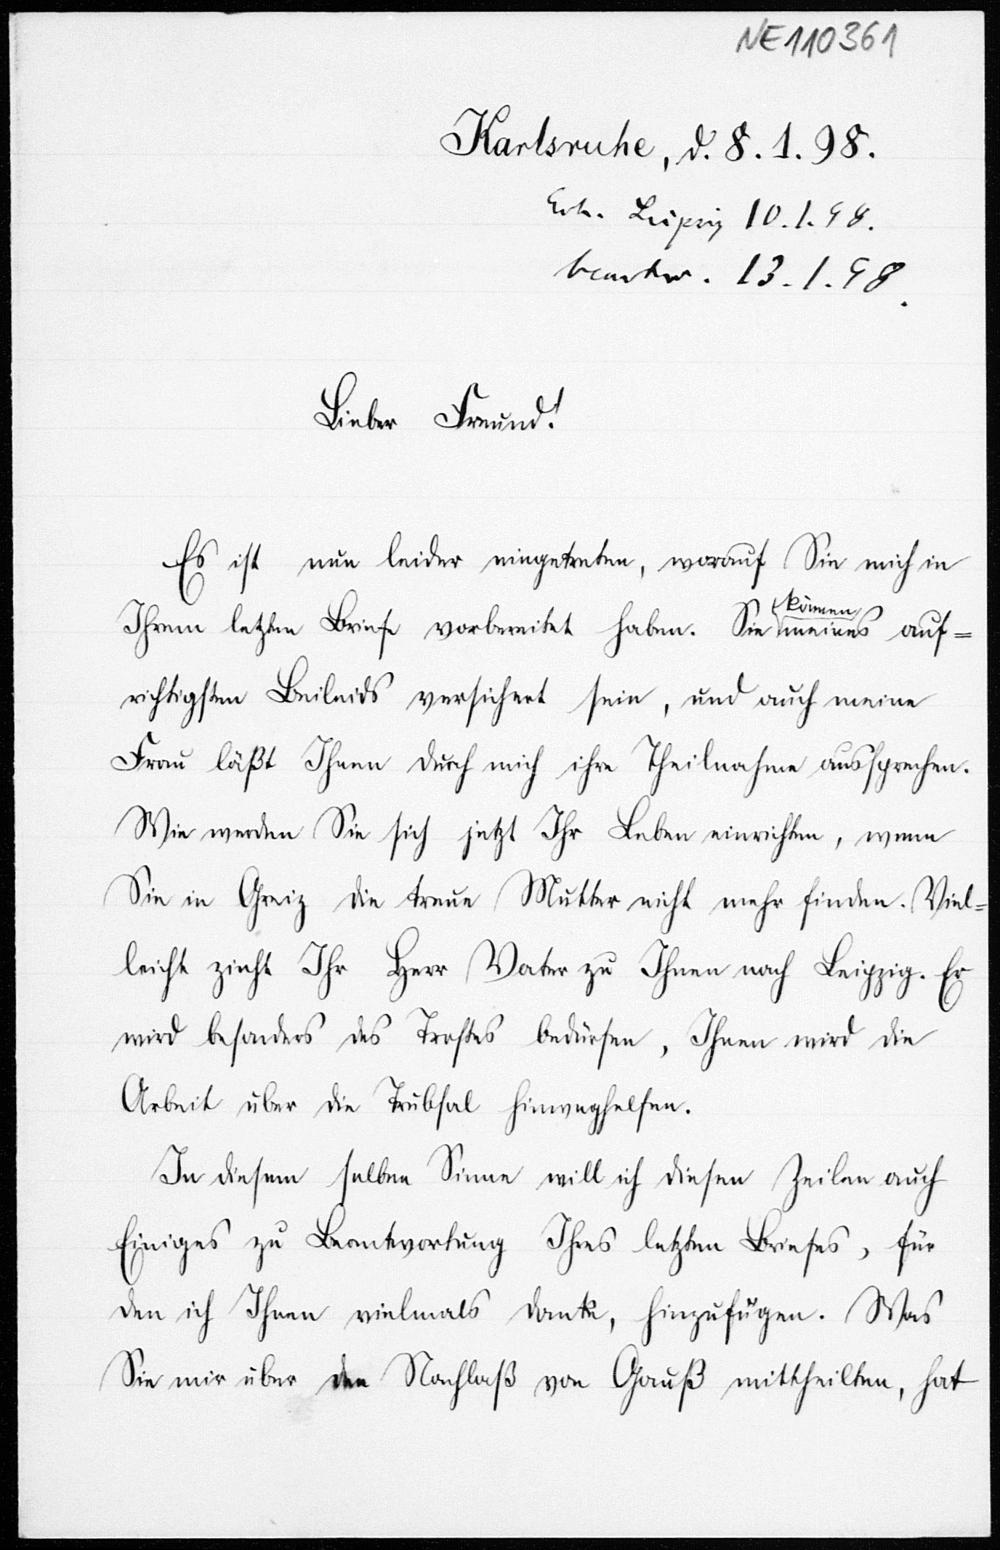 NE110361
Karlsruhe, d. 8. 1. 98.
Erh. Leipzig 10.1.98.
beantw. 13.1.98.
Lieber Freund!
Es ist nun leider eingetreten, worauf Sie mich in
Ihrem letzten Briefe vorbereitet haben. Sie können meines auf=
richtigsten Beileids versichert sein, und auch meine
Frau läßt Ihnen durch mich ihre Theilnahme aussprechen.
Wie werden Sie sich jetzt Ihr Leben einrichten, wenn
Sie in Greiz die treue Mutter nicht mehr finden. Viel=
leicht zieht Ihr Herr Vater zu Ihnen nach Leipzig. Er
wird besonders des Trostes bedürfen, Ihnen wird die
Arbeit über die Trübsal hinweghelfen.
In diesem selben Sinne will ich diesen Zeilen auch
Einiges zu Beantwortung Ihres letzten Briefes, für
den ich Ihnen vielmals danke, hinzufügen. Was
Sie mir über den Nachlaß von Gauß mittheilten, hat